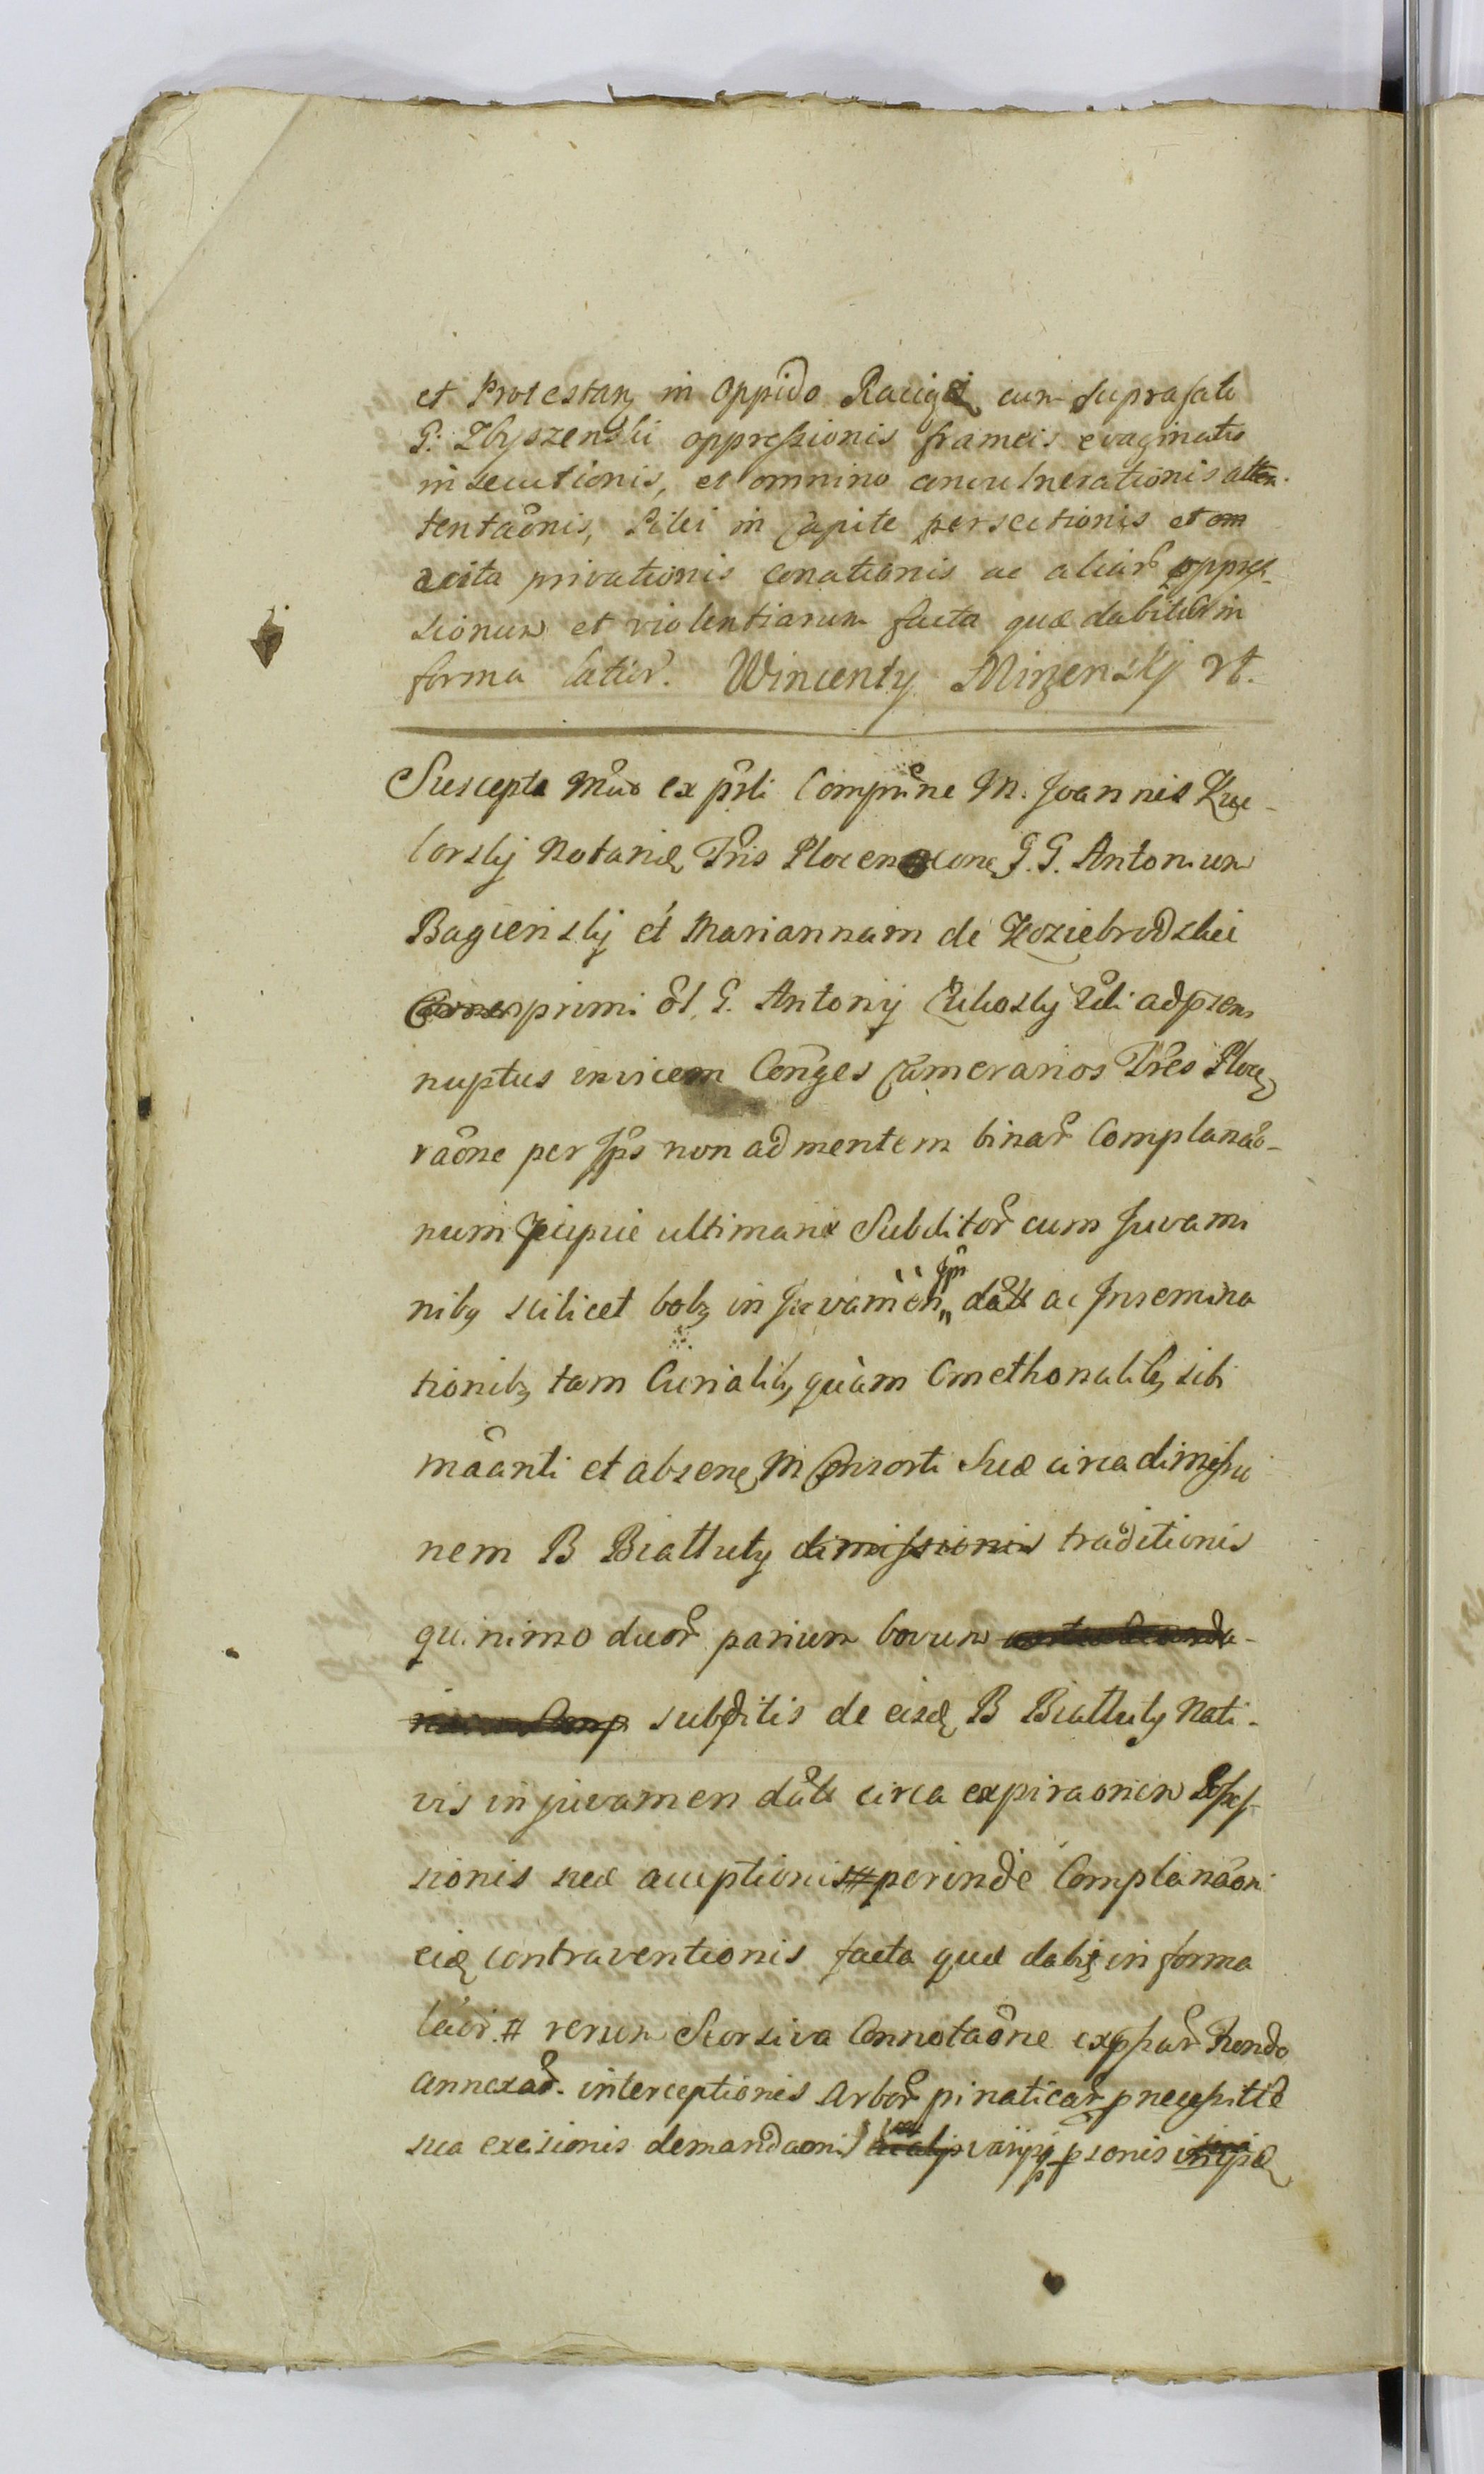 et Protestan, in Oppido Raciąż cum suprafato
G: Zbyszenski oppressionis frameis evaginatis
insecutionis, et omnino convulnerationis atten-
tentaonis, Pilei in Capite persectionis et om
vita privationis conationis ac aliar oppres-
sionum et violentiarum facta quæ dabitur in
forma latior. Wincenty Mirzensky
Suscepta ex Comparne M. Joannis Zue-
borsky Notarii Tris Plocen G. G. Antonium
Bagienski et Mariannam de Koziebrodzkie
primi ol. G. Antonij 2di ad præsens
nuptus invicem Conges Camerarios Tres Ploc
raone per Ips non ad mentem binar Complanao-
num ultimariæ Subditor cum Juvami
nibq scilicet bobq in Juvamen Ips dat ac Insemina
tionibq tam Curialibq quàm Cmethonalibq sibi
maanti et absenq M Consorti Suæ circa dimissio
nem B Biattuty dimissionis traditionis
quinimo duor parium bovum
subditis de eisdq B Biattuty Nati-
vis in juvamen dat circa expiraonem Posses-
sionis suæ acceptionis # perinde Complanaoni
eidq contraventionis facta quæ dabiq in forma
laior. # rerum Seorsiva Connotaone expssar
annexar. interceptionis Arbor pinaticar pnecessitte
sua excisionis demandaonis varijsq psonis